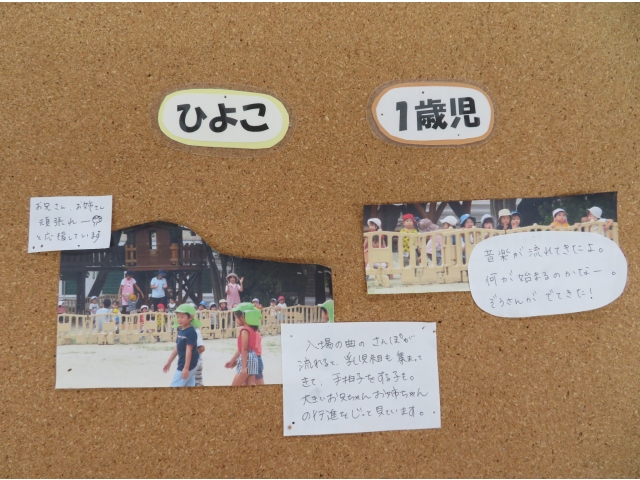 ひよこ
1歳児
お兄さん、お姉さん
頑張れー
と応援しています
音楽が流れてきたよ。
何が始まるのかなー。
ぞうさんがでてきた!
入場の曲のさんぽが
流れると、乳児組も集まって
きて、手拍子をする子も。
大きいお兄ちゃんお姉ちゃん
の行進をじっと見ています。